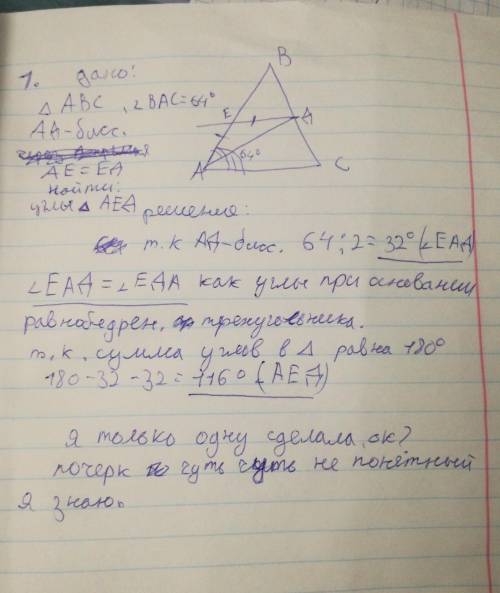 1. дано:
△ ABC, ∠BAC=64°
АД-бисс.
AE = EД
найти:
углы △ AEД
решение:
т.к АД-бисс. 64:2=32° (∠EAД)
∠EAД = ∠EДA как углы при основании
равнобедрен. треугольника.
т.к. сумма углов в △ равна 180°
180-32-32=116° (AEД)
Я только одну сделала, ок?
почерк чуть чуть не понетный
я знаю.
B
E
Д
64°
A
C